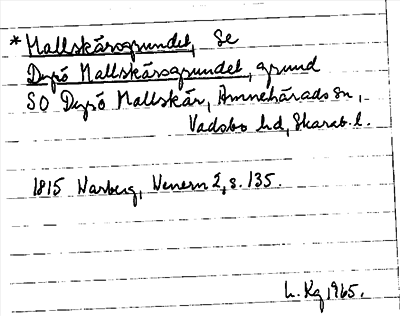 *Mallskärsgrundet, Se
Dyrö Mallskärsgrundet, grund
SO Dyrö Mallskär, Amnehärads sn,
Vadsbo hd, Skarab. l.
1815 Warberg, Wenern 2, s. 135.
L. Kg 1965.